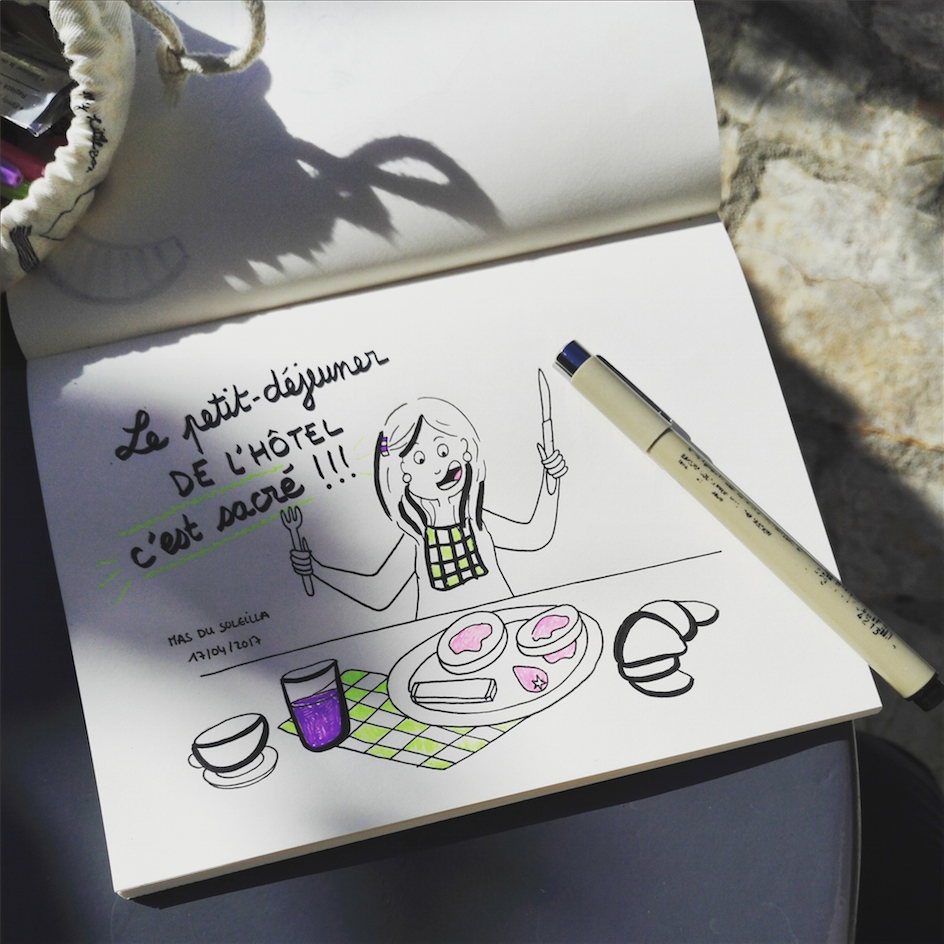 Le petit-déjeuner
DE L'HÔTEL
c'est sacré !!!
MAS DU SOLEILLA
17/04/2017